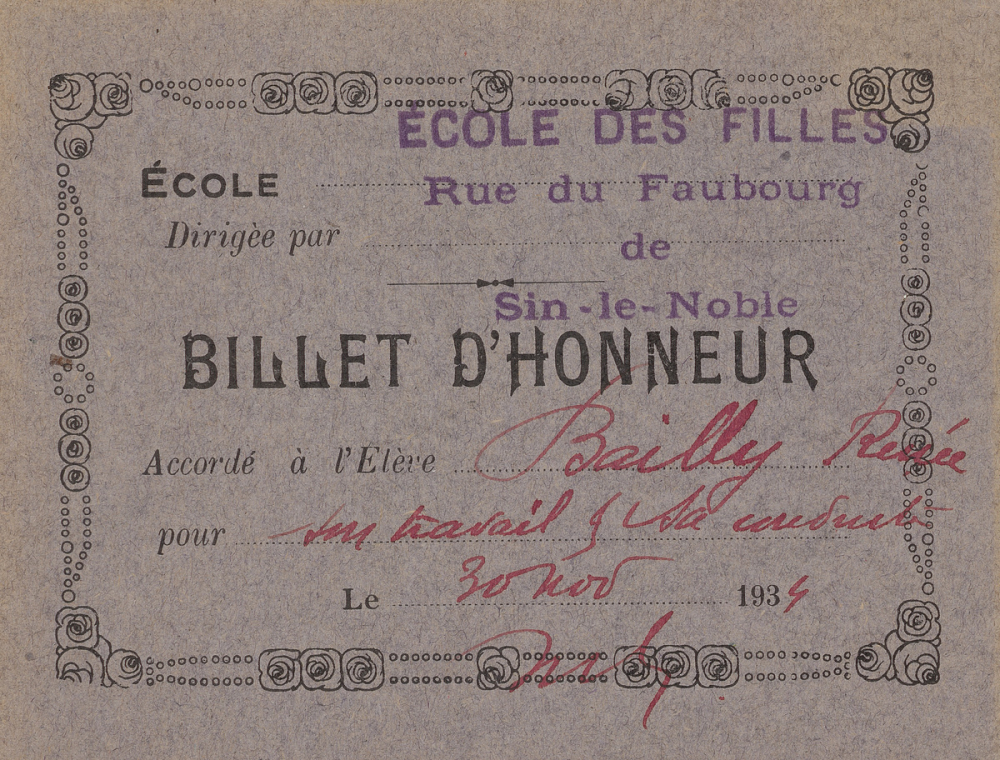 ÉCOLE DES FILLES
ÉCOLE Rue du Faubourg
Dirigèe par de
Sin-le-Noble
BILLET D'HONNEUR
Accordé à l'Elève Bailly Renée
pour son travail & sa conduite
Le 30 nov 1934